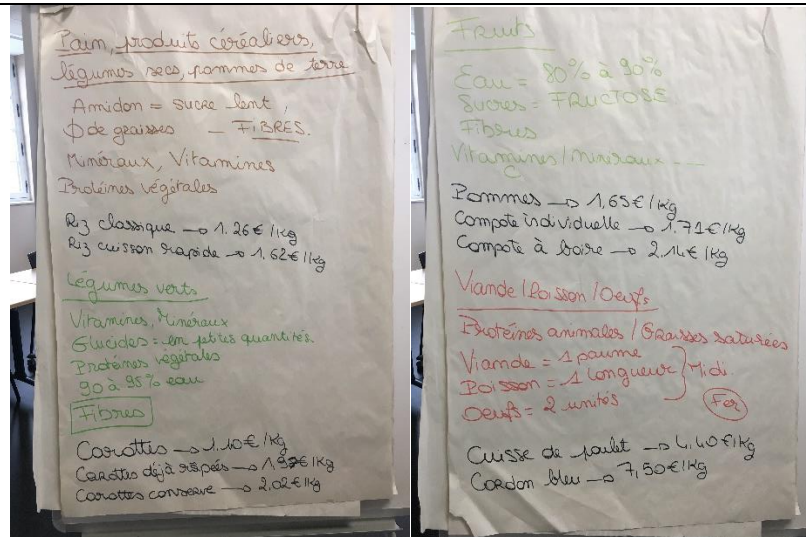 Pain, produits céréaliers,
légumes secs, pommes de terre
Amidon = sucre lent,
∅ de graisses – FIBRES.
Minéraux, Vitamines
Protéines végétales
Riz classique → 1.26€/kg
Riz cuisson rapide → 1.62€/kg
Légumes verts
Vitamines, Minéraux
Glucides = en petites quantités.
Protéines végétales
90 à 95% eau
Fibres
Carottes → 1,10€/kg
Carottes déjà râpées → €/kg
Carottes conserve → 2,02€/kg
Fruits
Eau = 80% à 90%
Sucres = FRUCTOSE
Fibres
Vitamines/minéraux ---
Pommes → 1,65€/kg
Compote individuelle → 1.71€/kg
Compote à boire → 2.14€/kg
Viande/Poisson/Oeufs
Protéines animales / Graisses saturées
Viande = 1 paume
Poisson = 1 longueur } Midi.
Oeufs = 2 unités
Fer
Cuisse de poulet → 4.40€/kg
Cordon bleu → 7,50€/kg